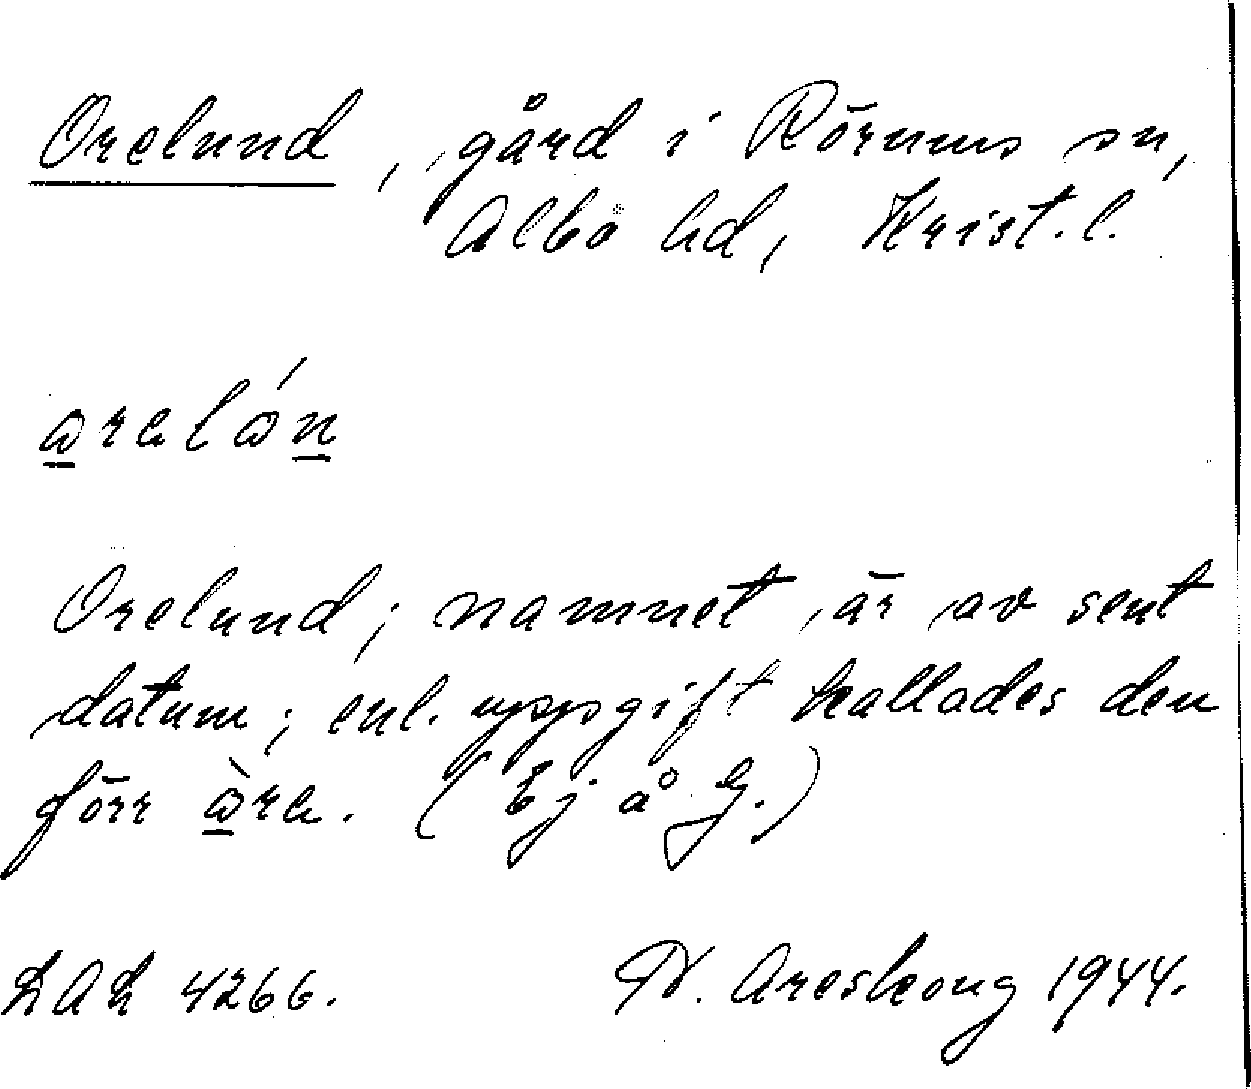 Orelund, gård i Rörums sn,
Albo hd, Krist. l.
Orelund; namnet är av sent
datum; enl. uppgift kallades den
förr òre. (Ej å G.)
LAL 4266. W. Areskoug 1944.